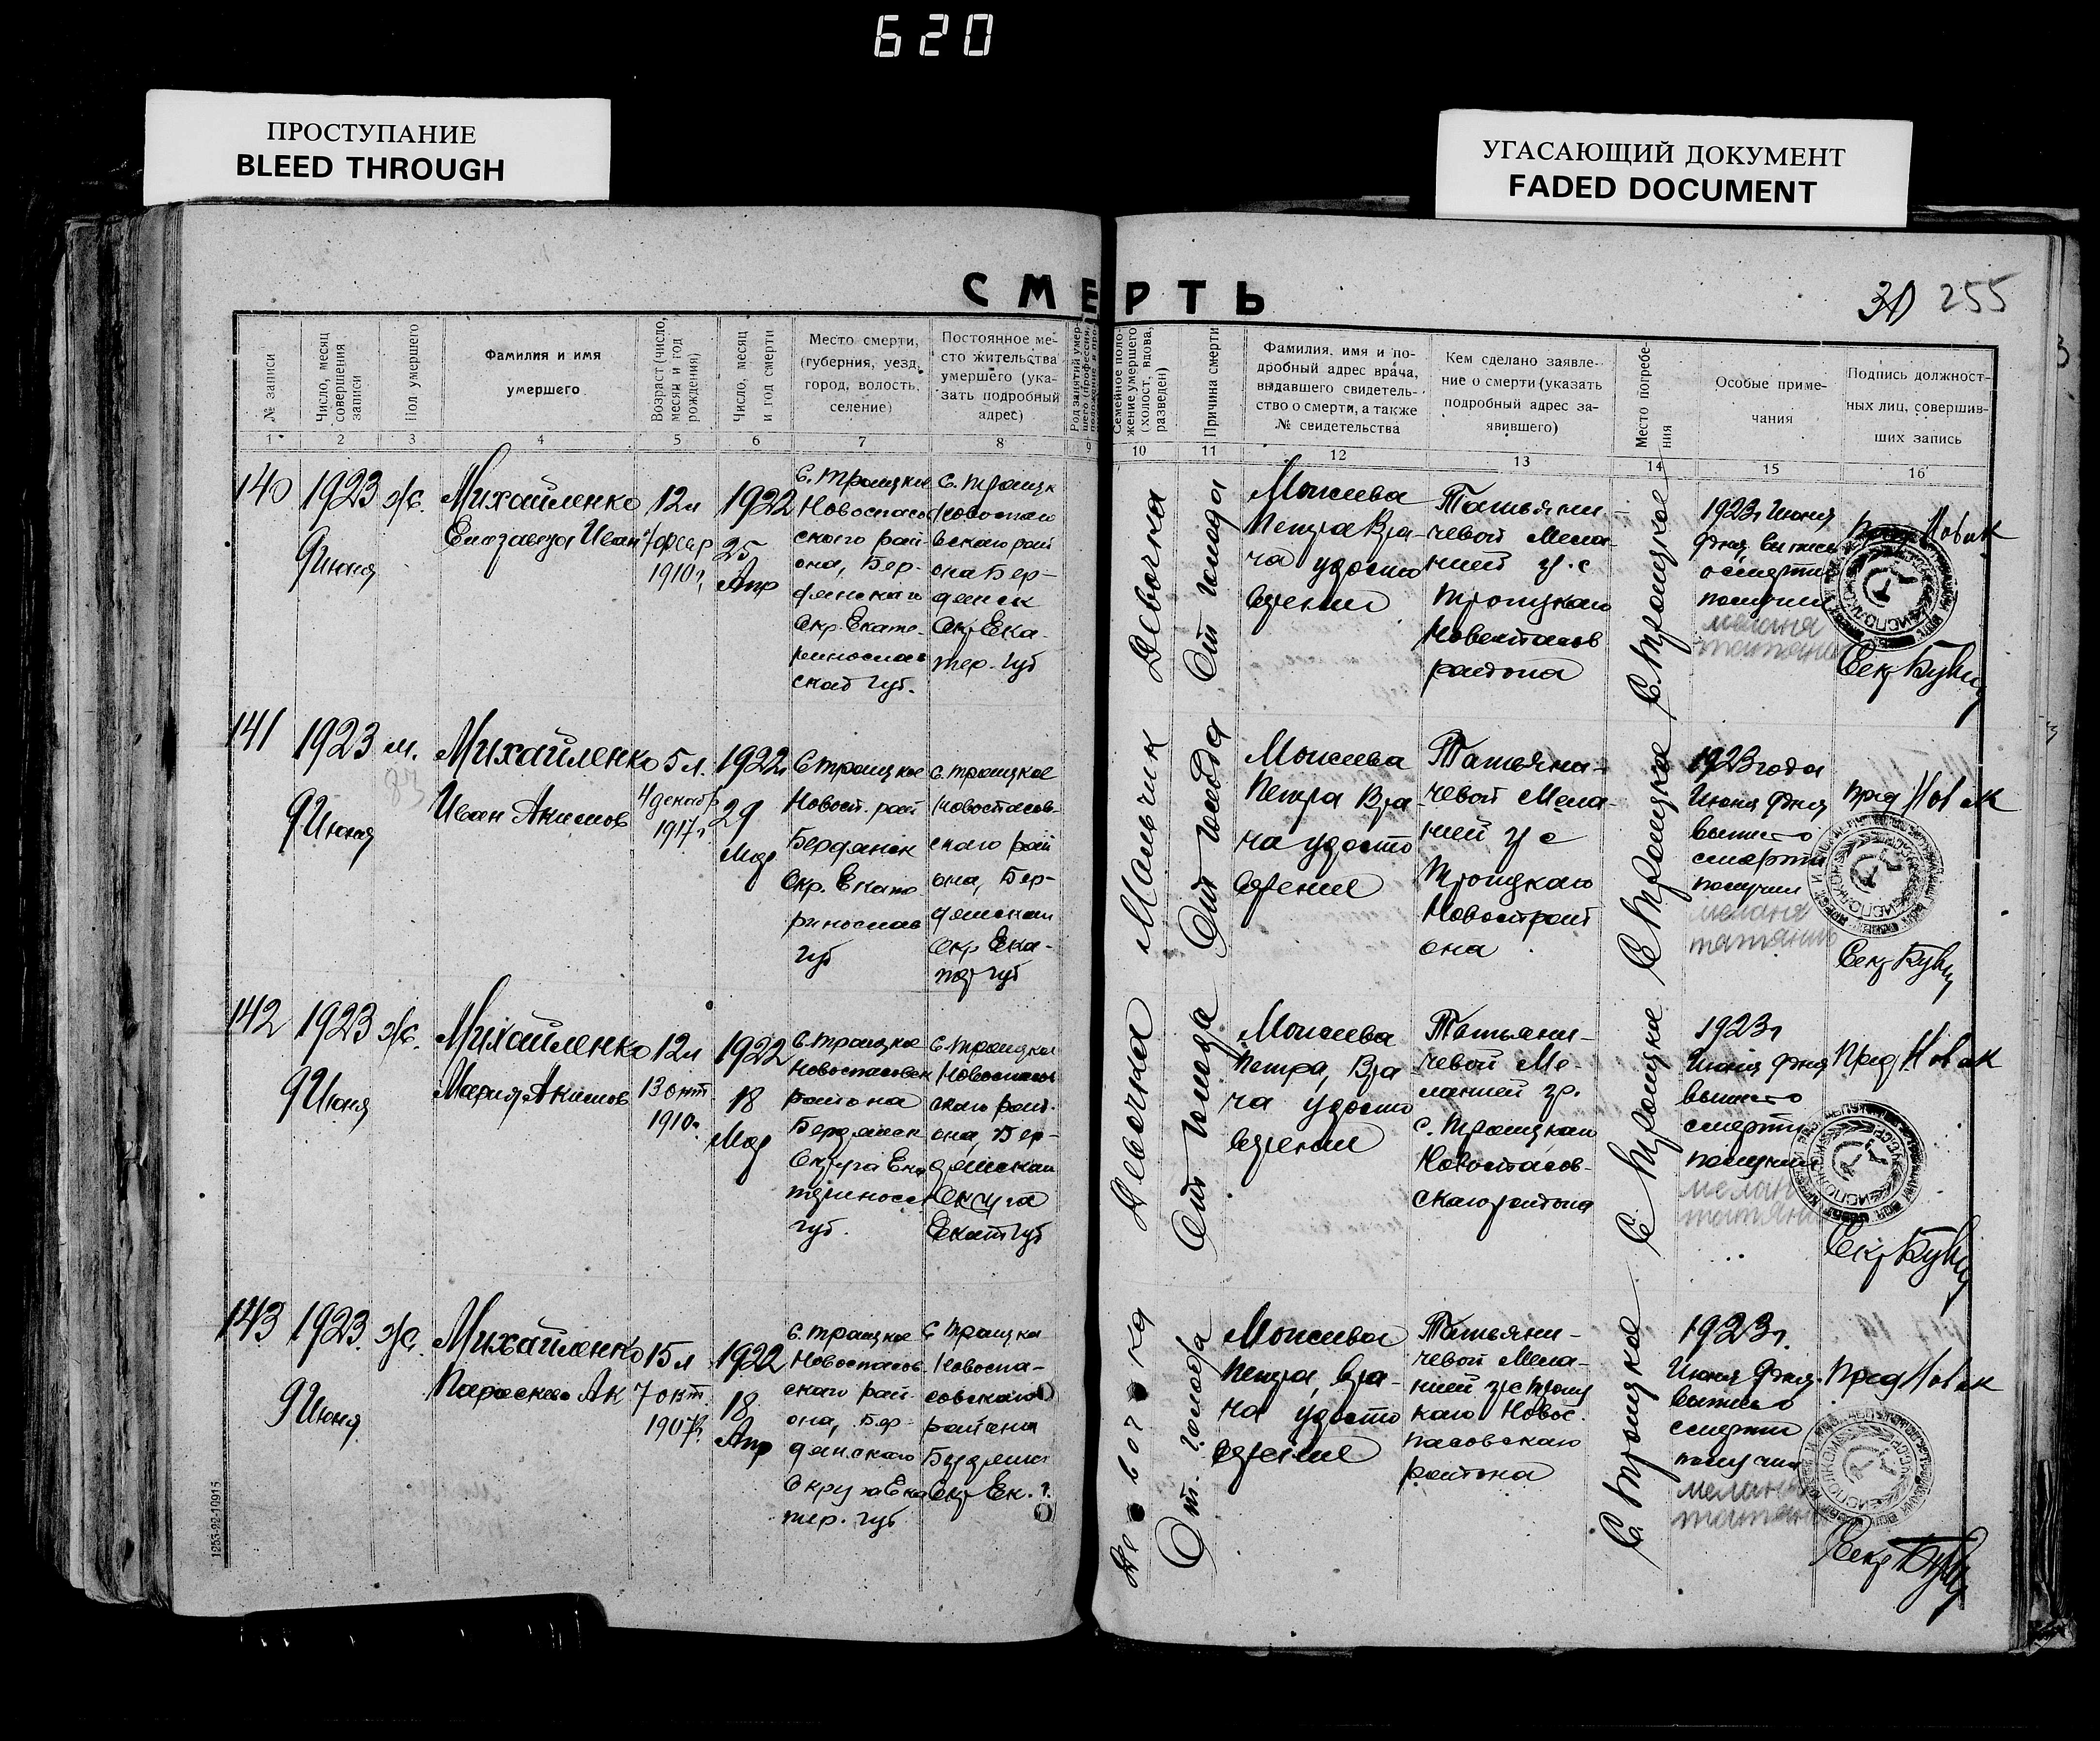 620
ПРОСТУПАНИЕ
BLEED THROUGH
УГАСАЮЩИЙ ДОКУМЕНТ
FADED DOCUMENT
СМЕРТЬ
30 255
№ записи
Число, месяц
совершения
записи
Пол умершего
Фамилия и имя
умершего
Возраст (число,
месяц и год
рождения)
Число, месяц
и год смерти
Место смерти,
(губерния, уезд,
город, волость,
селение)
Постоянное ме-
сто жительства
умершего (ука-
зать подробный
адрес)
Семейное поло-
жение умершего
(холост, вдова,
разведен)
Причина смерти
Фамилия, имя и по-
дробный адрес врача,
выдавшего свидетель-
ство о смерти, а также
№ свидетельства
Кем сделано заявле-
ние о смерти (указать
подробный адрес за-
явившего)
Место погребе-
ния
Особые приме-
чания
Подпись должност-
ных лиц, совершив-
ших запись
1 2 3 4 5 6 7 8 9 10 11 12 13 14 15 16
140
1923
9 Июня
ж.
Михайленко
Елизавета Иван
12 л
7 февр
1910 г.
1922
25
Апр
С. Троицкое
Новоспасов
ского рай-
она, Бер-
дянского
Окр. Екате-
ринослав
ской губ.
С. Троицк
Новоспасо
вского рай
она Бер-
дянск
Окр Ека-
тер. губ
Девочка
От голода
Моисеева
Петра Вра-
ча удосто
верение
Татьяни-
чевой Мела-
нией гр. с
Троицкого
Новоспасов
района
С. Троицкое
1923 г Июня
9 дня выпись
о смерти
получил
мелания
татьянич
Пред Новак
Секр
141
1923
9 Июня
м.
83
Михайленко
Иван Акимов
5 л.
4 декабр
1917 г
1922 г
29
Мар
С Троицкое
Новосп. рай
Бердянск
Окр. Екате
ринослав
губ
С. Троицкое
Новоспасов-
ского рай
она, Бер-
дянской
Окр Ека-
тер губ
Мальчик
От голода
Моисеева
Петра Вра-
ча удосто
верение
Татьяни-
чевой Мела-
нией гр с
Троицкого
Новоспрай
она
С Троицкое
1923 года
Июня 9 дня
выпись о
смерти
получил
мелания
татьянич
Пред Новак
Секр
142
1923
9 Июня
ж.
Михайленко
Мария Акимов
12 л
13 окт
1910 г.
1922
18
Мар
С. Троицкое
Новоспасовск
района
Бердянск
Округа Ека
теринослав
губ.
С. Троицкое
Новоспасов
ского рай-
она, Бер-
дянской
Округа
Екат губ
Девочка
От голода
Моисеева
Петра, Вра
ча удосто
верение
Татьяни-
чевой Ме-
ланией гр.
с. Троицкого
Новоспасов-
ского района
С. Троицкое
1923 г
Июня 9 дня
выпись о
смерти
получил
мелан
татьяни
Пред Новак
Секр
143
1923
9 Июня
ж.
Михайленко
Параскева Ак
15 л
7 окт.
1907 г.
1922
18
Апр
С. Троицкое
Новоспасов
ского рай-
она, Бер-
дянского
Округа Ека
тер. губ
С Троицкое
Новоспа-
совского
района
Бердянск
Окр Ек. г.
Девочка
От. голода
Моисеева
Петра, Вра-
ча удосто
верение
Татьяни-
чевой Мела-
нией гр с Троиц
кого Новос-
пасовского
района
С. Троицкое
1923 г.
Июня 9 дня
выпись о
смерти
получил
мелан
татьян
Пред Новак
Секр
1253-22-10915